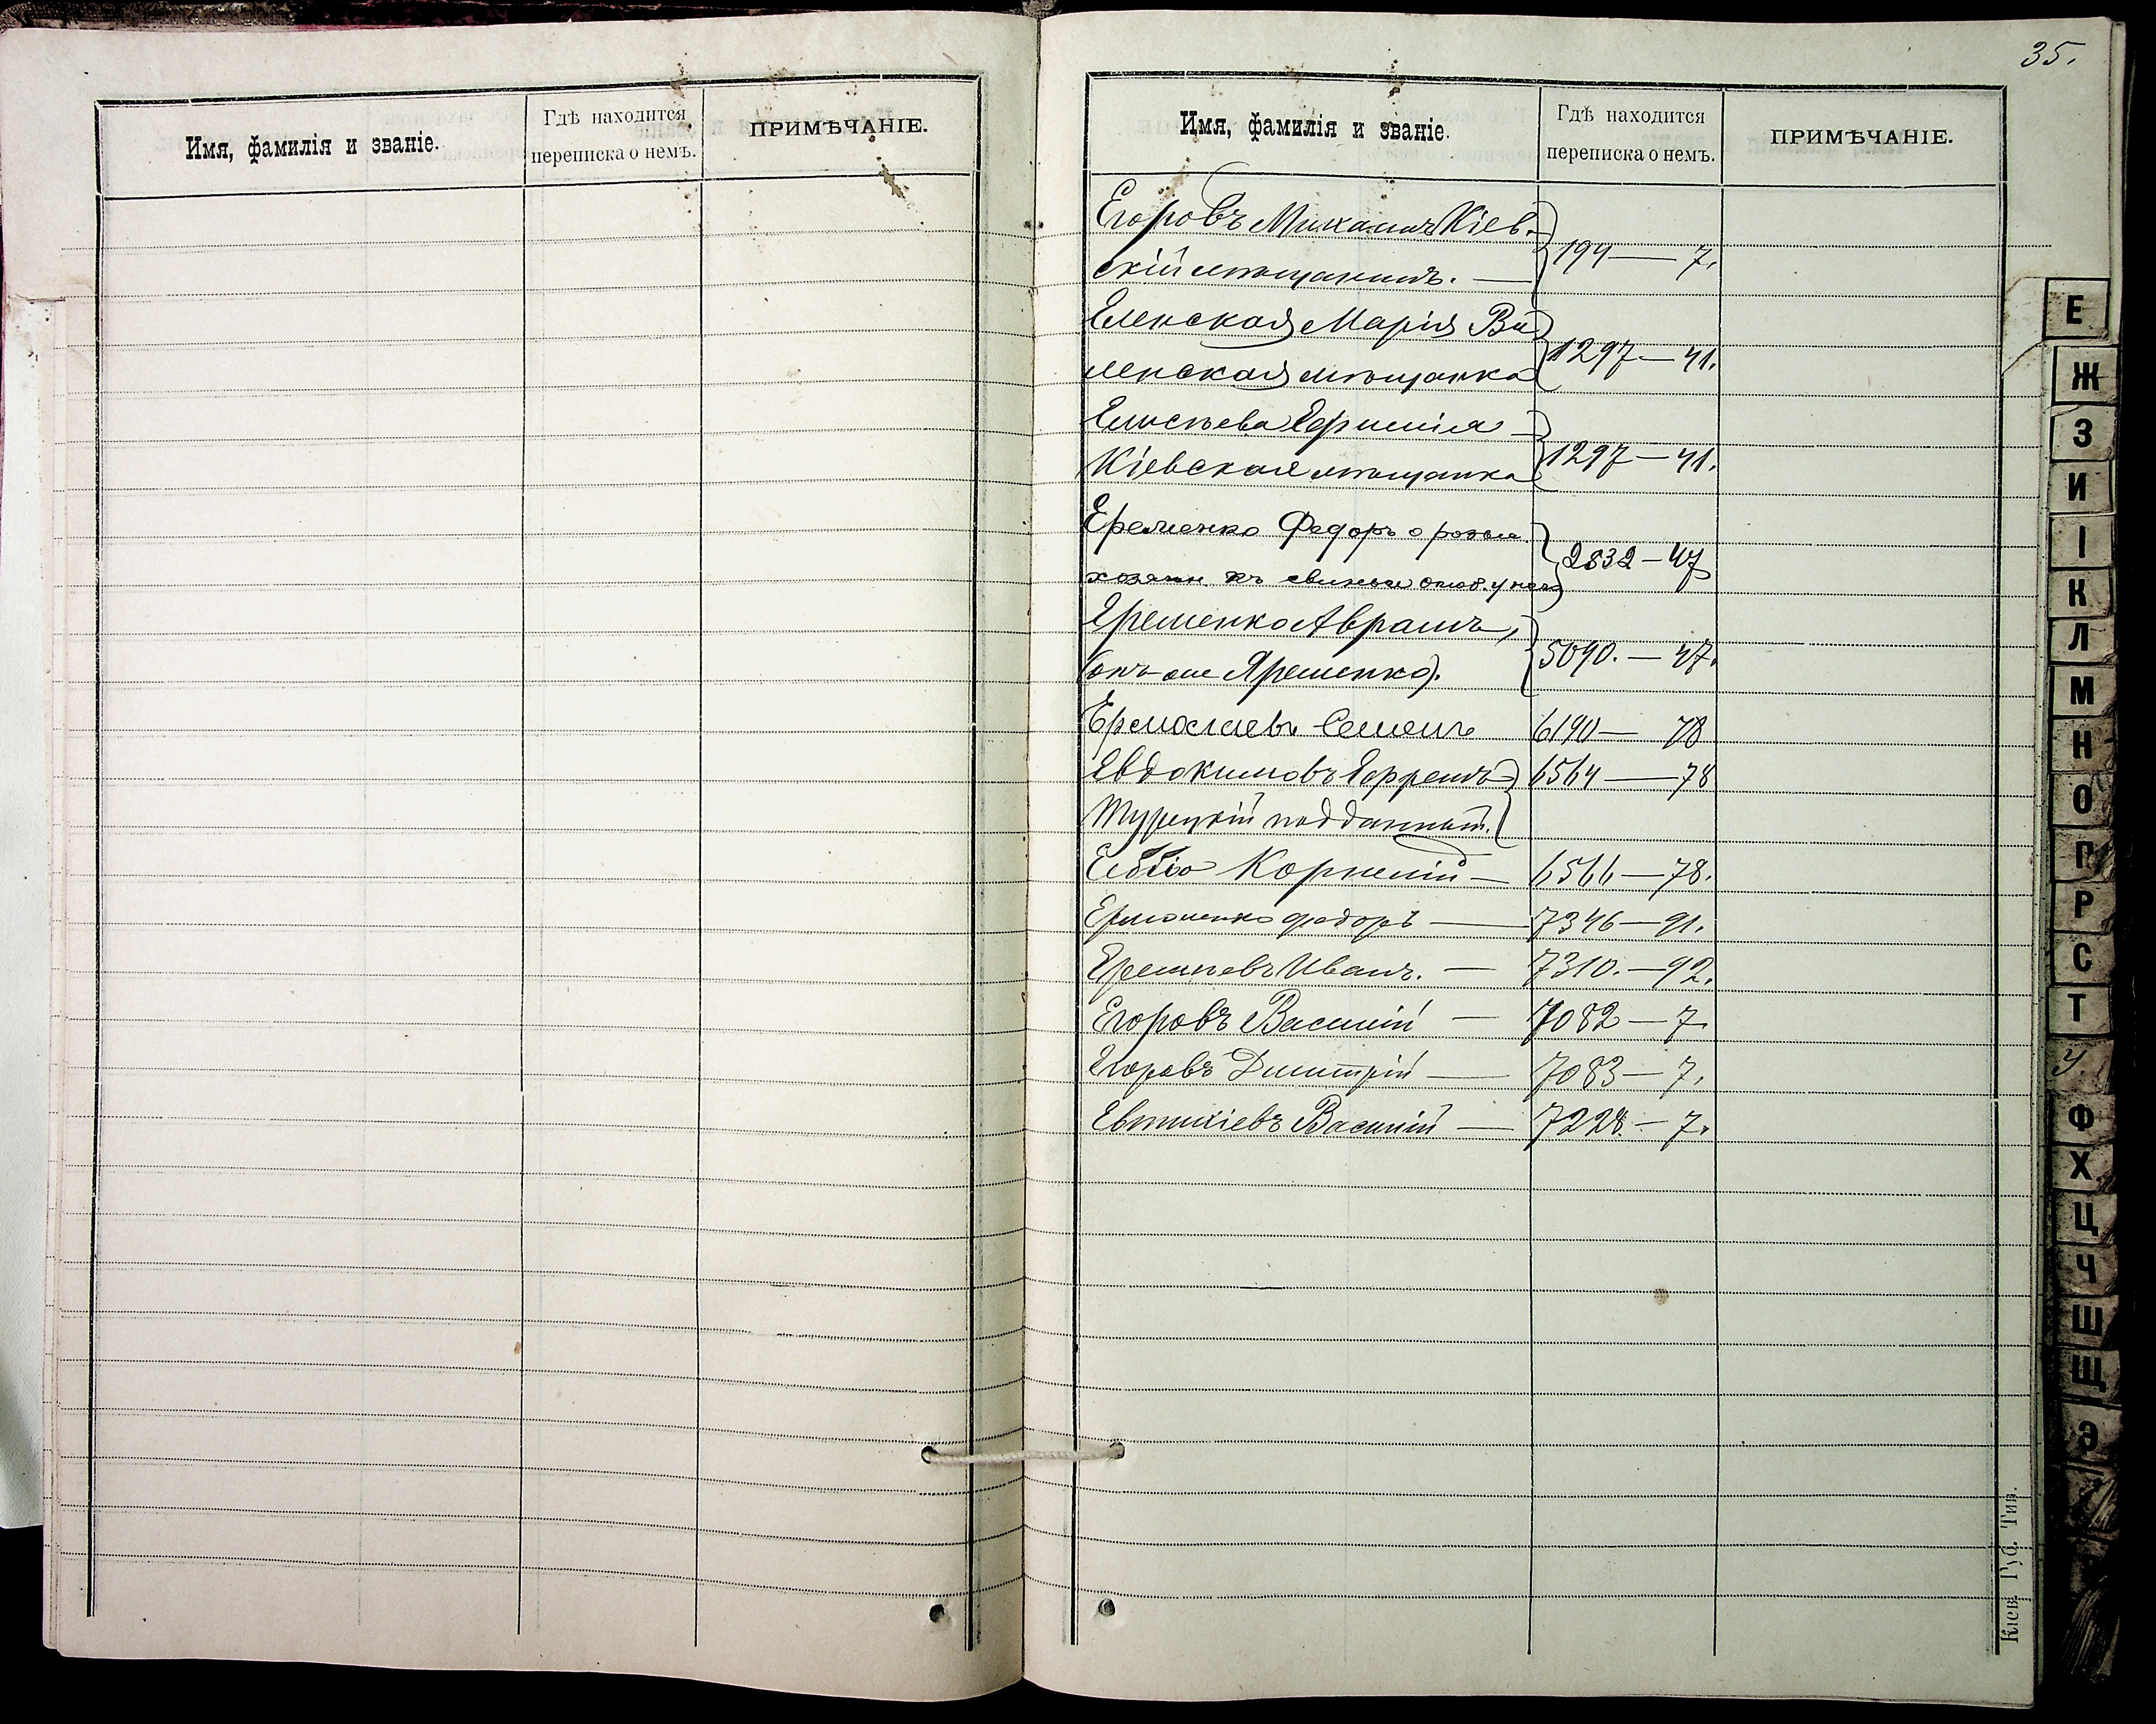 Имя, фамилія и званіе.
Гдѣ находится
переписка о немъ.
ПРИМѢЧАНІЕ.
35.
Имя, фамилія и званіе.
Гдѣ находится
переписка о немъ.
ПРИМѢЧАНІЕ.
Егоровъ Михаилъ Кіев-
скій мѣщанинъ. — 194 — 7.
Еленская Марія Ви
ленская мѣщанка 1297 — 41.
Елисѣева Ефимія —
Кіевская мѣщанка 1297 — 41.
Еременко Федоръ о розыск.
хозяин. къ свинье отоб. у него 2832 — 47
Еременко Аврамъ,
(онъ-же Яременко). 5090. — 47.
Ермолаевъ Семенъ 6190 — 78
Евдокимовъ Ефремъ 6564 — 78
Турецкій подданный.
Корнелій — 6566 — 78.
Ермоленко Федоръ — 7346 — 91.
Еремѣевъ Иванъ. — 7310. — 92.
Егоровъ Василій — 7082 — 7.
Егоровъ Дмитрій — 7083 — 7.
Евтихіевъ Василій — 7228. — 7.
Е
Ж
З
И
І
К
Л
М
Н
О
П
Р
С
Т
У.
Ф
Х
Ц
Ч
Ш
Щ
Э
Кіев. Губ. Тип.